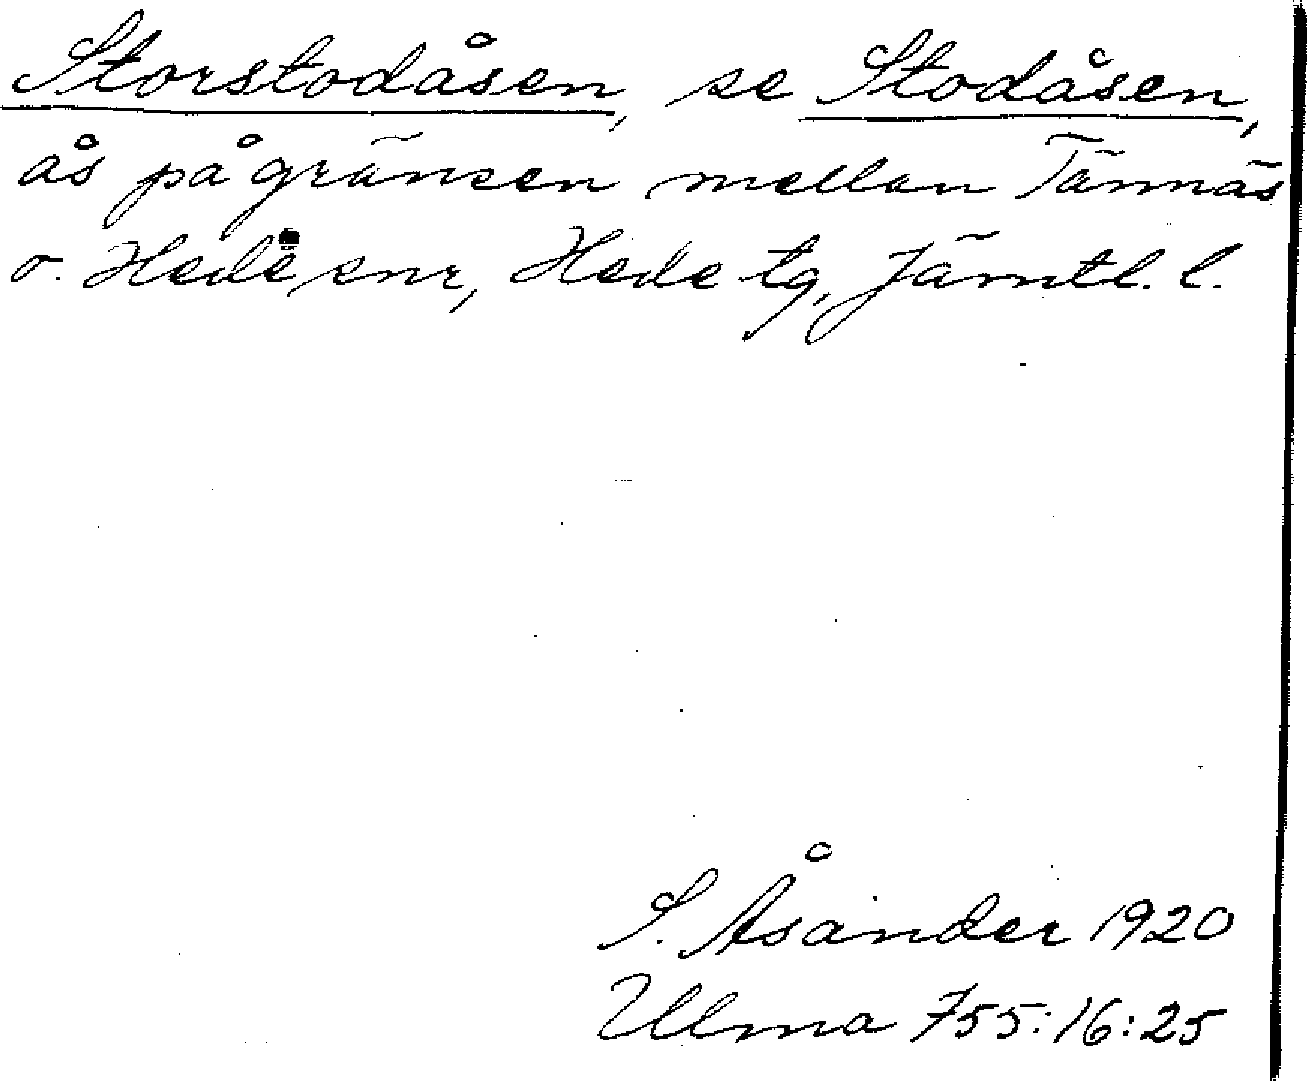 Storstodåsen, se Stodåsen,
ås på gränsen mellan Tännäs
o. Hede snr, Hede tg, Jämtl. l.
S. Åsander 1920
Ulma 755:16:25